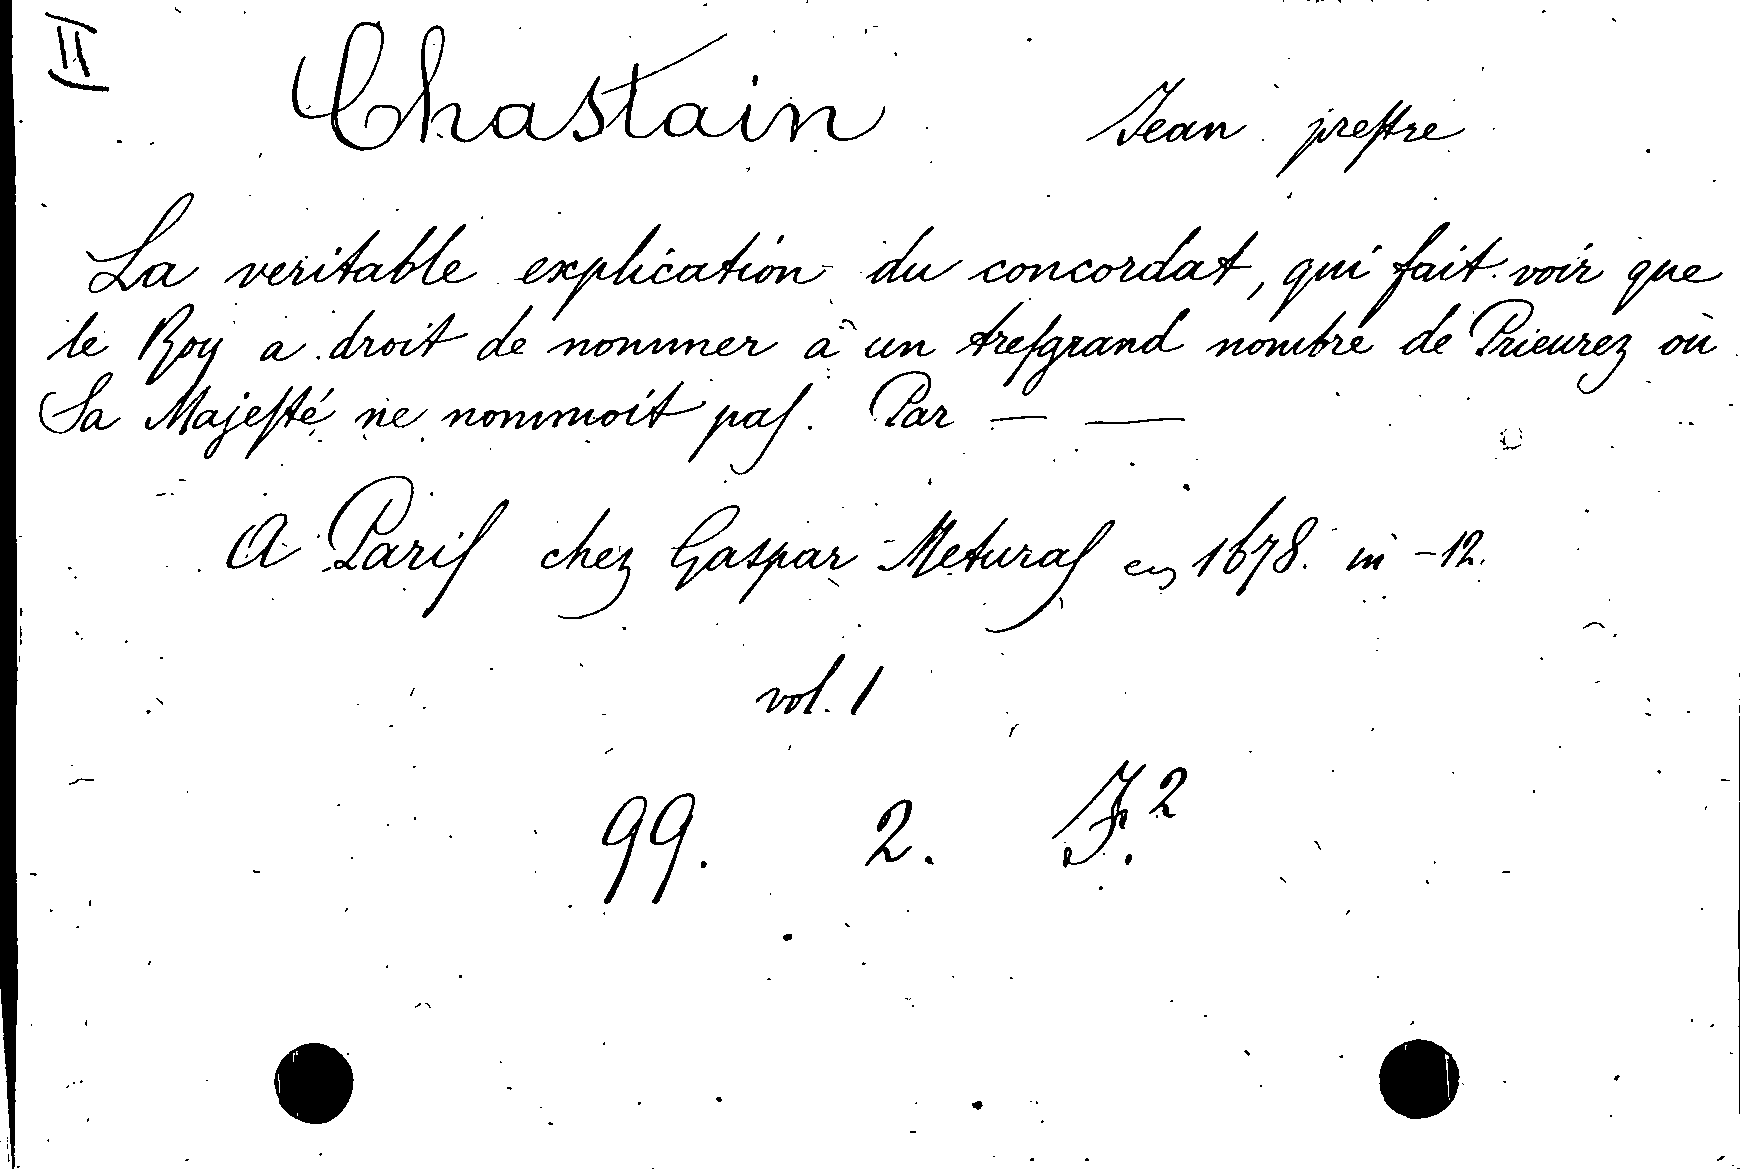 II
Chastain Jean preſtre
La veritable explication du concordat, qui fait voir que
le Roy a droit de nommer à un treſgrand nombre de Prieurez où
Sa Majeſté ne nommoit paſ. Par — —
A Pariſ chez Gaspar Meturaſ en 1678. in -12.
vol. 1
99. 2. F.²